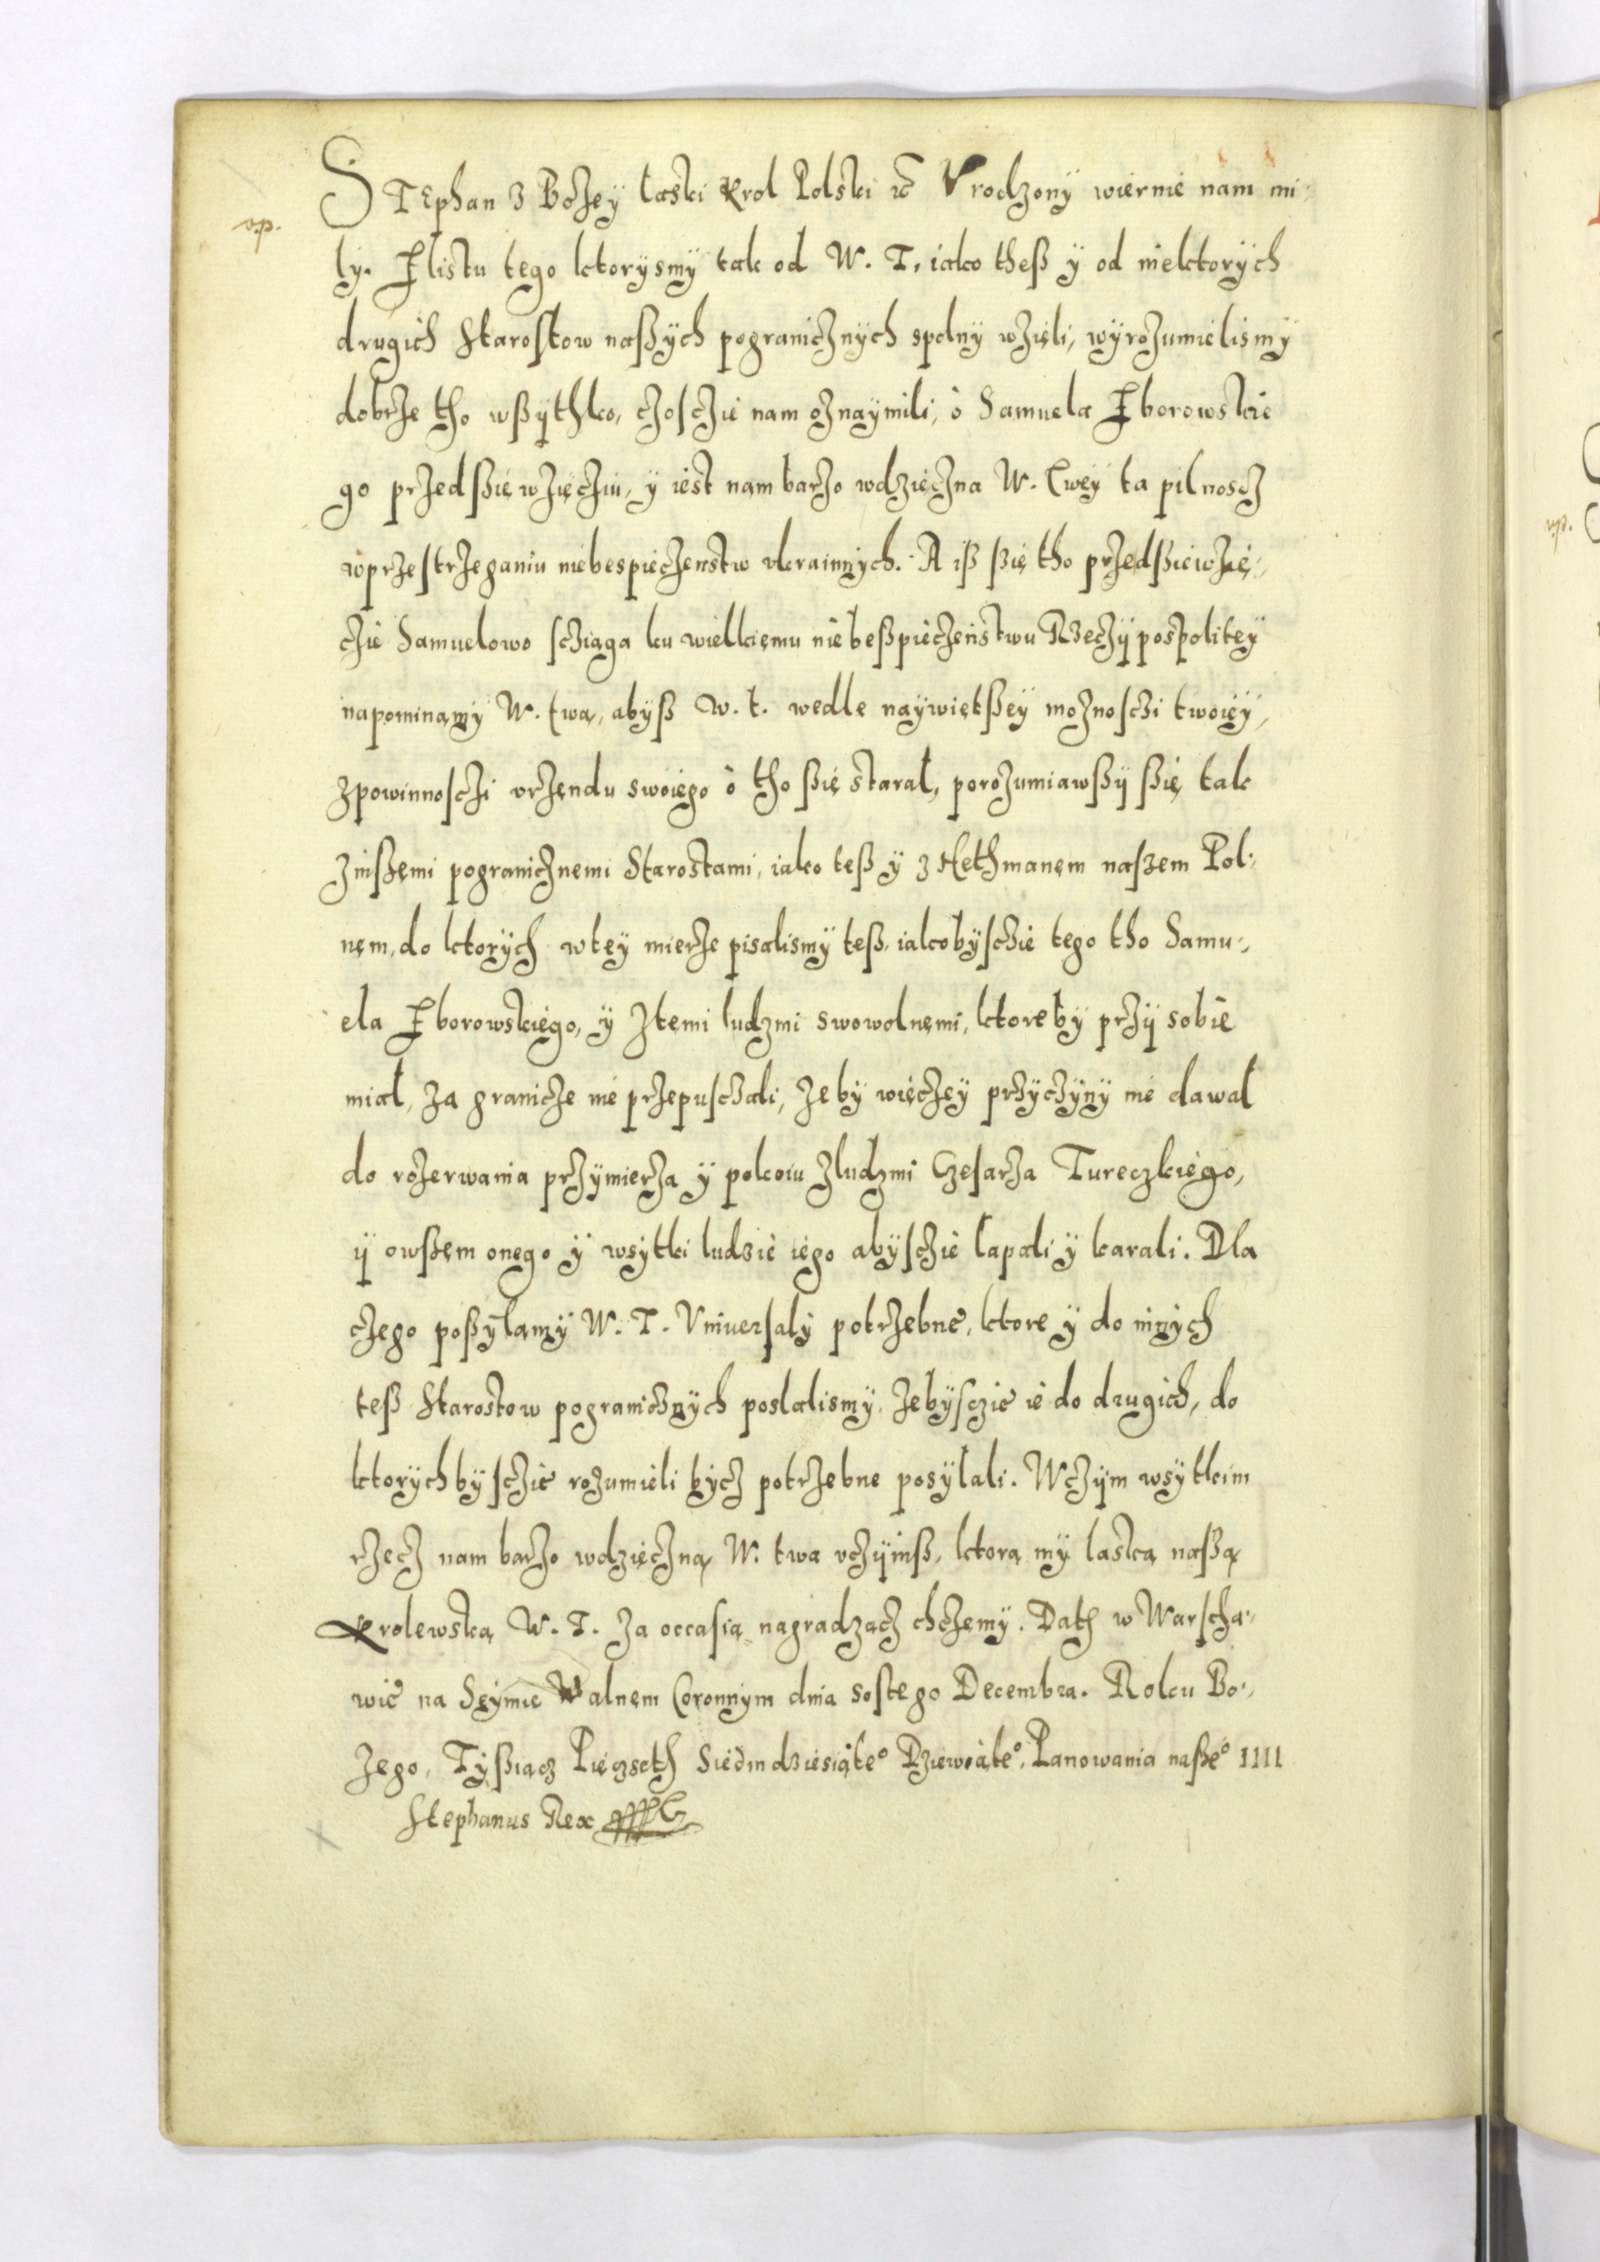 STEphan z Bożey laski Krol Polski etc Vrodzony wiernie nam mi-
op.
ly. Z listu tego ktorysmÿ tak od W. T. iako theß ÿ od niektorÿch
drugich starostow naßÿch pogranicznÿch spolnÿ wzięli, wÿrozumielismÿ
dobrze tho wßÿthko, czosczie nam oznaÿmili, o Samuela Zborowskie
go przedßięwzięcziu, ÿ iest nam barzo wdzięczna W. Twey ta pilnoscz
w przestrzeganiu niebespieczenstw ukrainnÿch. A iß ßię tho przedßiewzię-
czie Samuelowo scziąga ku wielkiemu niebeßpieczenstwu Rzeczÿ pospolitey
napominamÿ W. twą, abÿß W. t. wedle naÿwiętßeÿ moznosczi twoieÿ,
z powinnosczi vrzendu swoiego o tho ßię staral, porozumiawßÿ ßię tak
z inßemi pogranicznemi Starostami, iako teß ÿ z Hethmanem naszem Pol-
nem, do ktorÿch w teÿ mierze pisalismÿ teß, iakobÿsczie tego tho Samu-
ela Zborowskiego, ÿ z temi ludzmi swowolnemi, ktorebÿ przÿ sobie
mial, za granicze nie przepusczali, zebÿ więczeÿ przÿczÿnÿ nie dawal
do rozerwania przÿmierza ÿ pokoiu z ludzmi Czesarza Tureczkiego,
ÿ owßem onego ÿ wsÿtki ludzie iego abÿsczie lapali ÿ karali. Dla
czego poßÿlamÿ W. T. Vniuersalÿ potrzebne, ktore ÿ do innÿch
teß starostow pogranicznÿch poslalismÿ. Zebÿsczie ie do drugich, do
ktorÿchbÿsczie rozumieli bÿcz potrzebne posÿlali. W czÿm wsÿtkim
rzecz nam barzo wdzięczną W. twa vczÿniß, ktorą mÿ laską naßą
Krolewską W. T. za occasią nagradzacz chczemÿ. Dath w Warscha-
wie na Seÿmie Walnem Coronnÿm dnia sostego Decembra. Roku Bo-
zego, Tÿßiącz Pięczseth Siedmdziesiąteº Dziewiąteº, Panowania naßeº IIII
Stephanus Rex